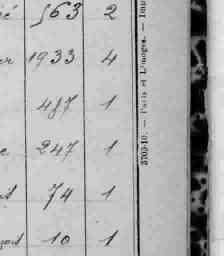 563 2
1933 4
487 1
247 1
74 1
10 1
3703-10. — Paris et Limoges. — Imp